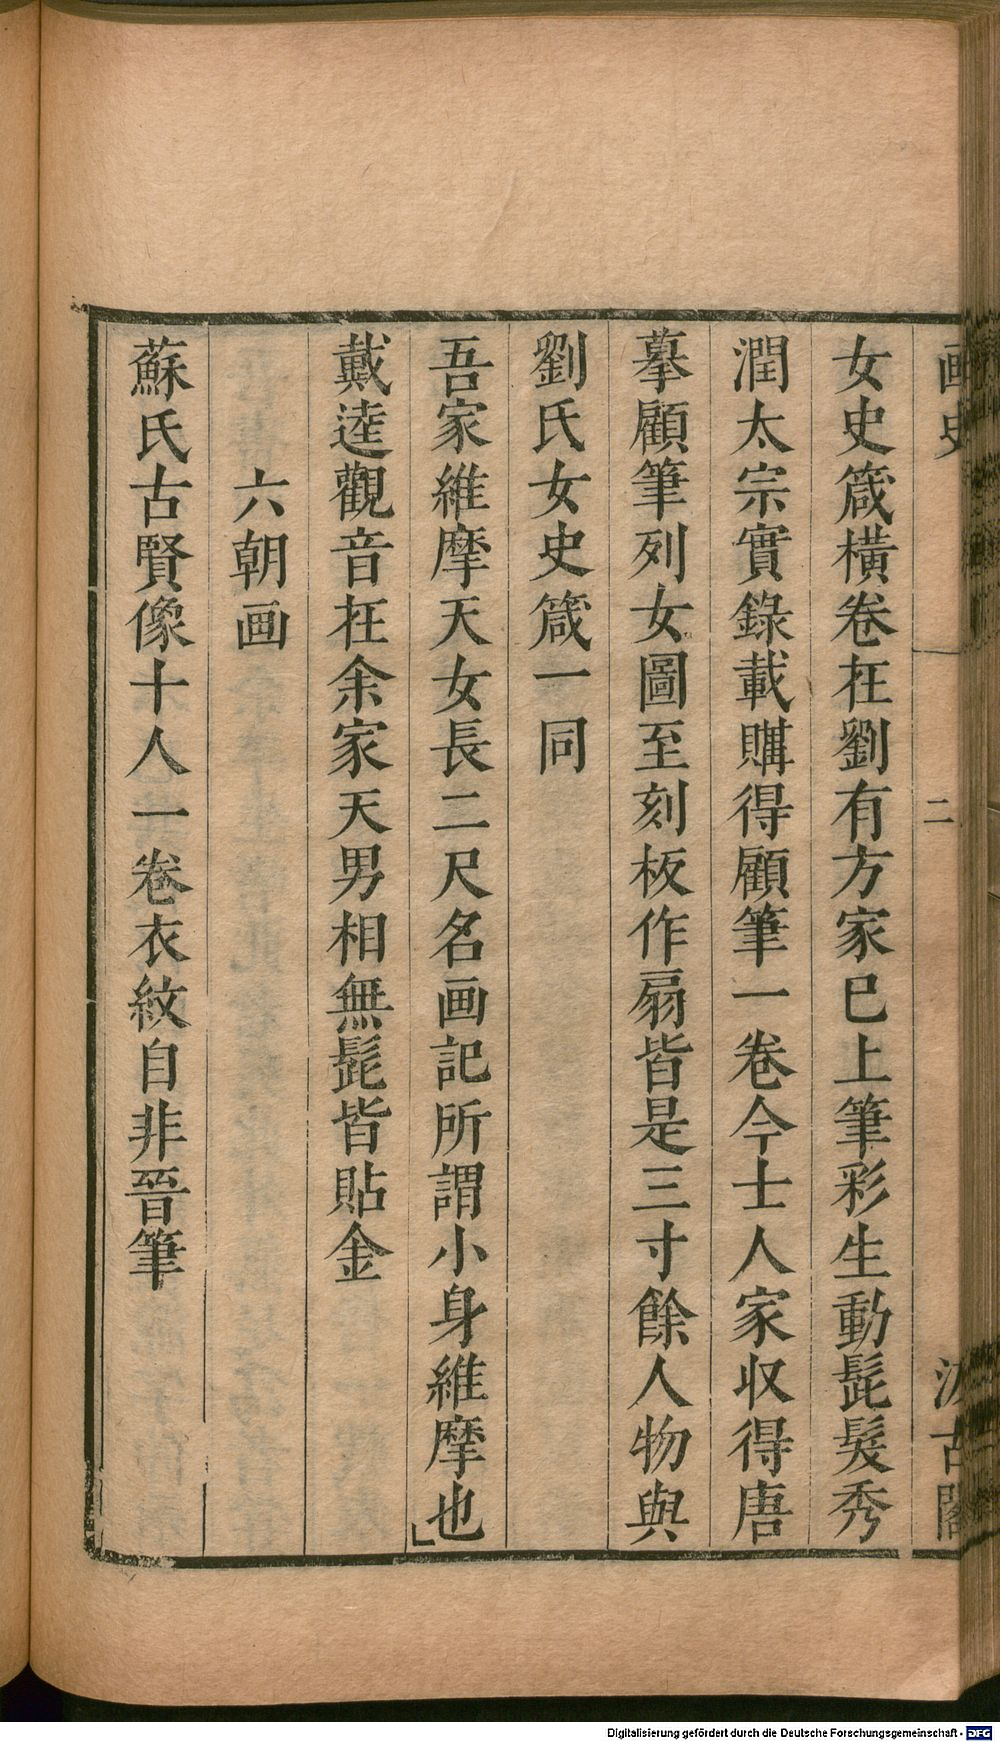 画史
二
汲古閣
女史箴橫卷在劉有方家已上筆彩生動髭髮秀
潤太宗實錄載購得顧筆一卷今士人家収得唐
摹顧筆列女圖至刻板作扇皆是三寸餘人物與
劉氏女史箴一同
吾家維摩天女長二尺名画記所謂小身維摩也
戴逵觀音在余家天男相無髭皆貼金
六朝画
蘇氏古賢像十人一卷衣紋自非晉筆
Digitalisierung gefördert durch die Deutsche Forschungsgemeinschaft - DFG